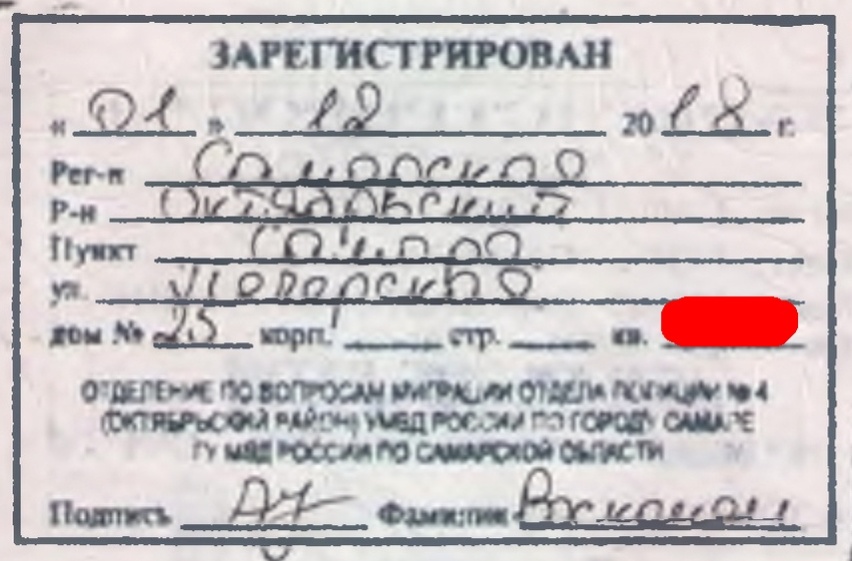 ЗАРЕГИСТРИРОВАН
« 01 » 12 20 18 г.
Рег-н Самарская
Р-н Октябрьский
Пункт Самара
ул.
дом № 25 корп. стр. кв.
ОТДЕЛЕНИЕ ПО ВОПРОСАМ МИГРАЦИИ ОТДЕЛА ПОЛИЦИИ № 4
(ОКТЯБРЬСКИЙ РАЙОН) УМВД РОССИИ ПО ГОРОДУ САМАРЕ
ГУ МВД РОССИИ ПО САМАРСКОЙ ОБЛАСТИ
Подпись Фамилия